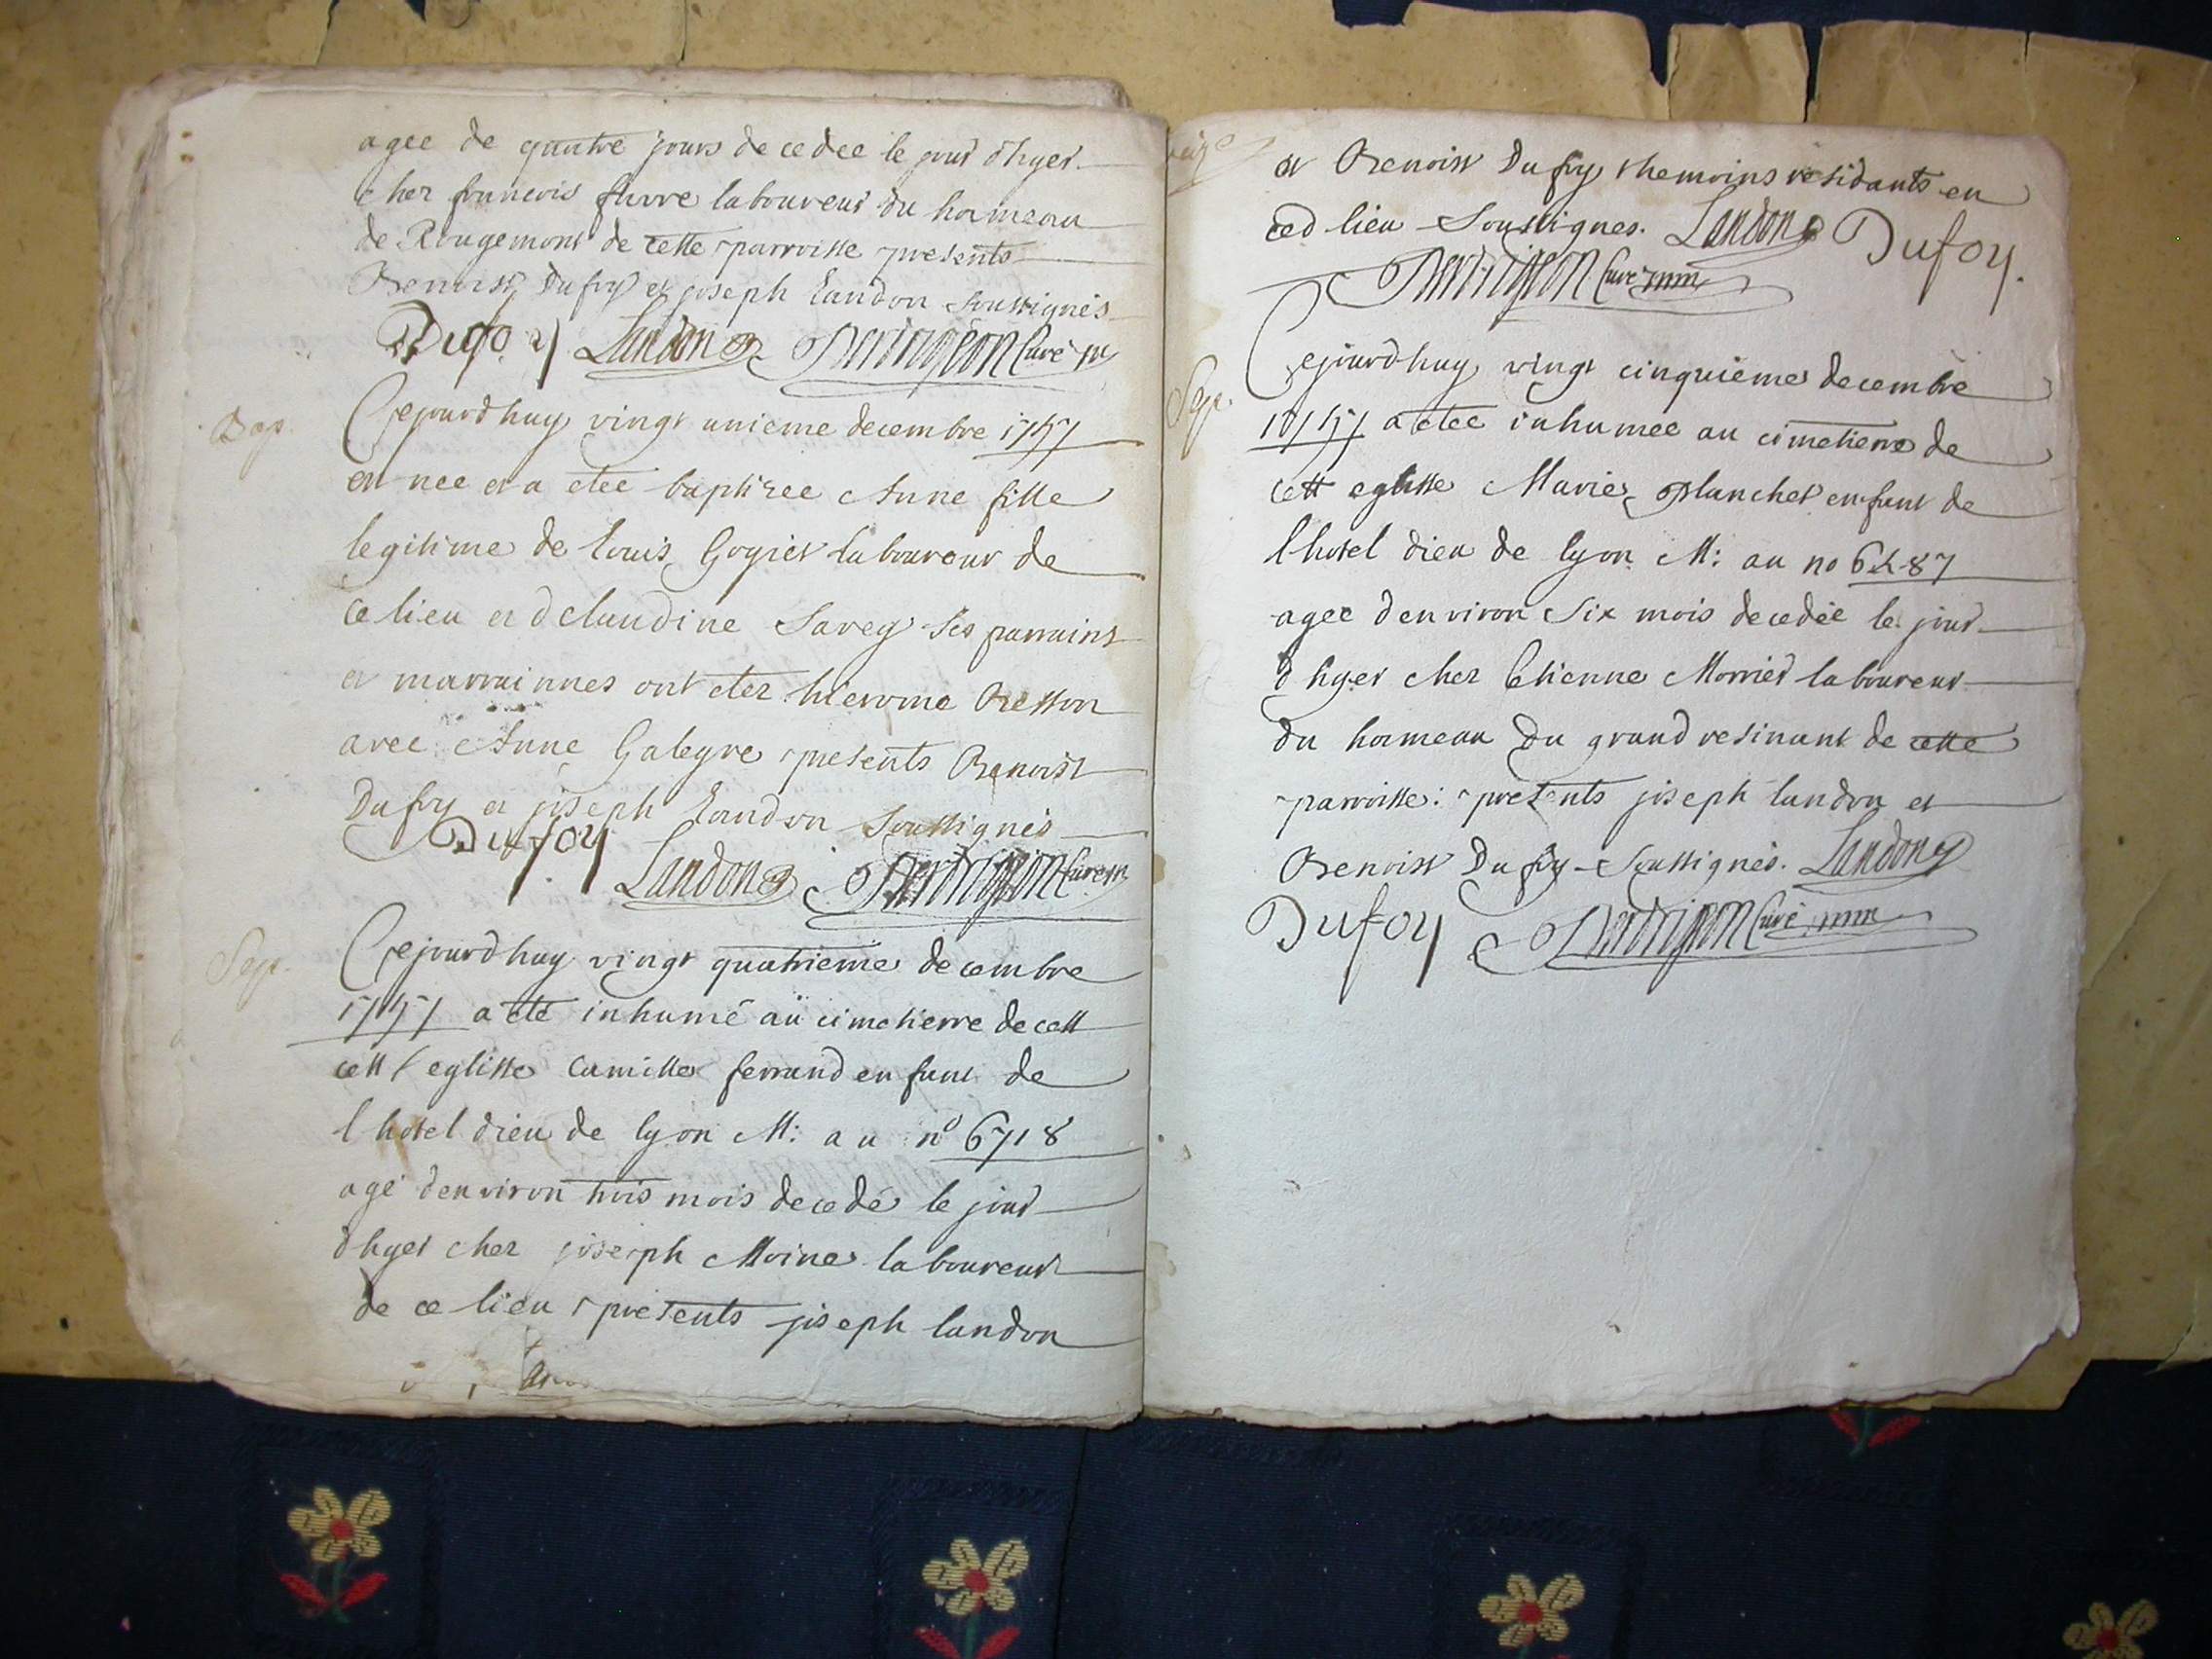 agee de quatre jours decedee le jour d'hyer
chez francois favre laboureur du hameau
de Rougemont de cette parroisse presents
Benoist Dufoy et joseph landon soussignés
Dufoy Landon Curé
Bap.
Cejourdhuy vingt unieme decembre 1757
est nee et a etee baptisee Anne fille
legitime de louis Gogiet laboureur de
ce lieu et d claudine Savey ses parrains
et marrainnes ont etez hierome Besson
avec Anne Galegre presents Benoist
Dufoy et joseph Landon soussignés
Dufoy
Landon Curé
Sep.
Cejourdhuy vingt quatrieme decembre
1757 a été inhumé au cimetierre de cett
cett eglisse Camille ferrand enfant de
lhotel dieu de lyon M: au no 6718
agé denviron trois mois decedé le jour
dhyer chez joseph Moine laboureur
de ce lieu presents joseph landon
et Benoist Dufoy themoins residants en
ced lieu Soussignes. Landon Dufoy.
Curé
Sep.
Cejourdhuy vingt cinquieme decembre
1757 a etee inhumee au cimetierre de
cett eglisse Marie Planchet enfant de
lhotel dieu de lyon M: au no
agee denviron Six mois decedée le jour
dhyer chez Etienne Morrier laboureur
du hameau du grand vesinant de cette
parroisse: presents joseph landon et
Benoist Dufoy Soussignés. Landon
Dufoy Curé